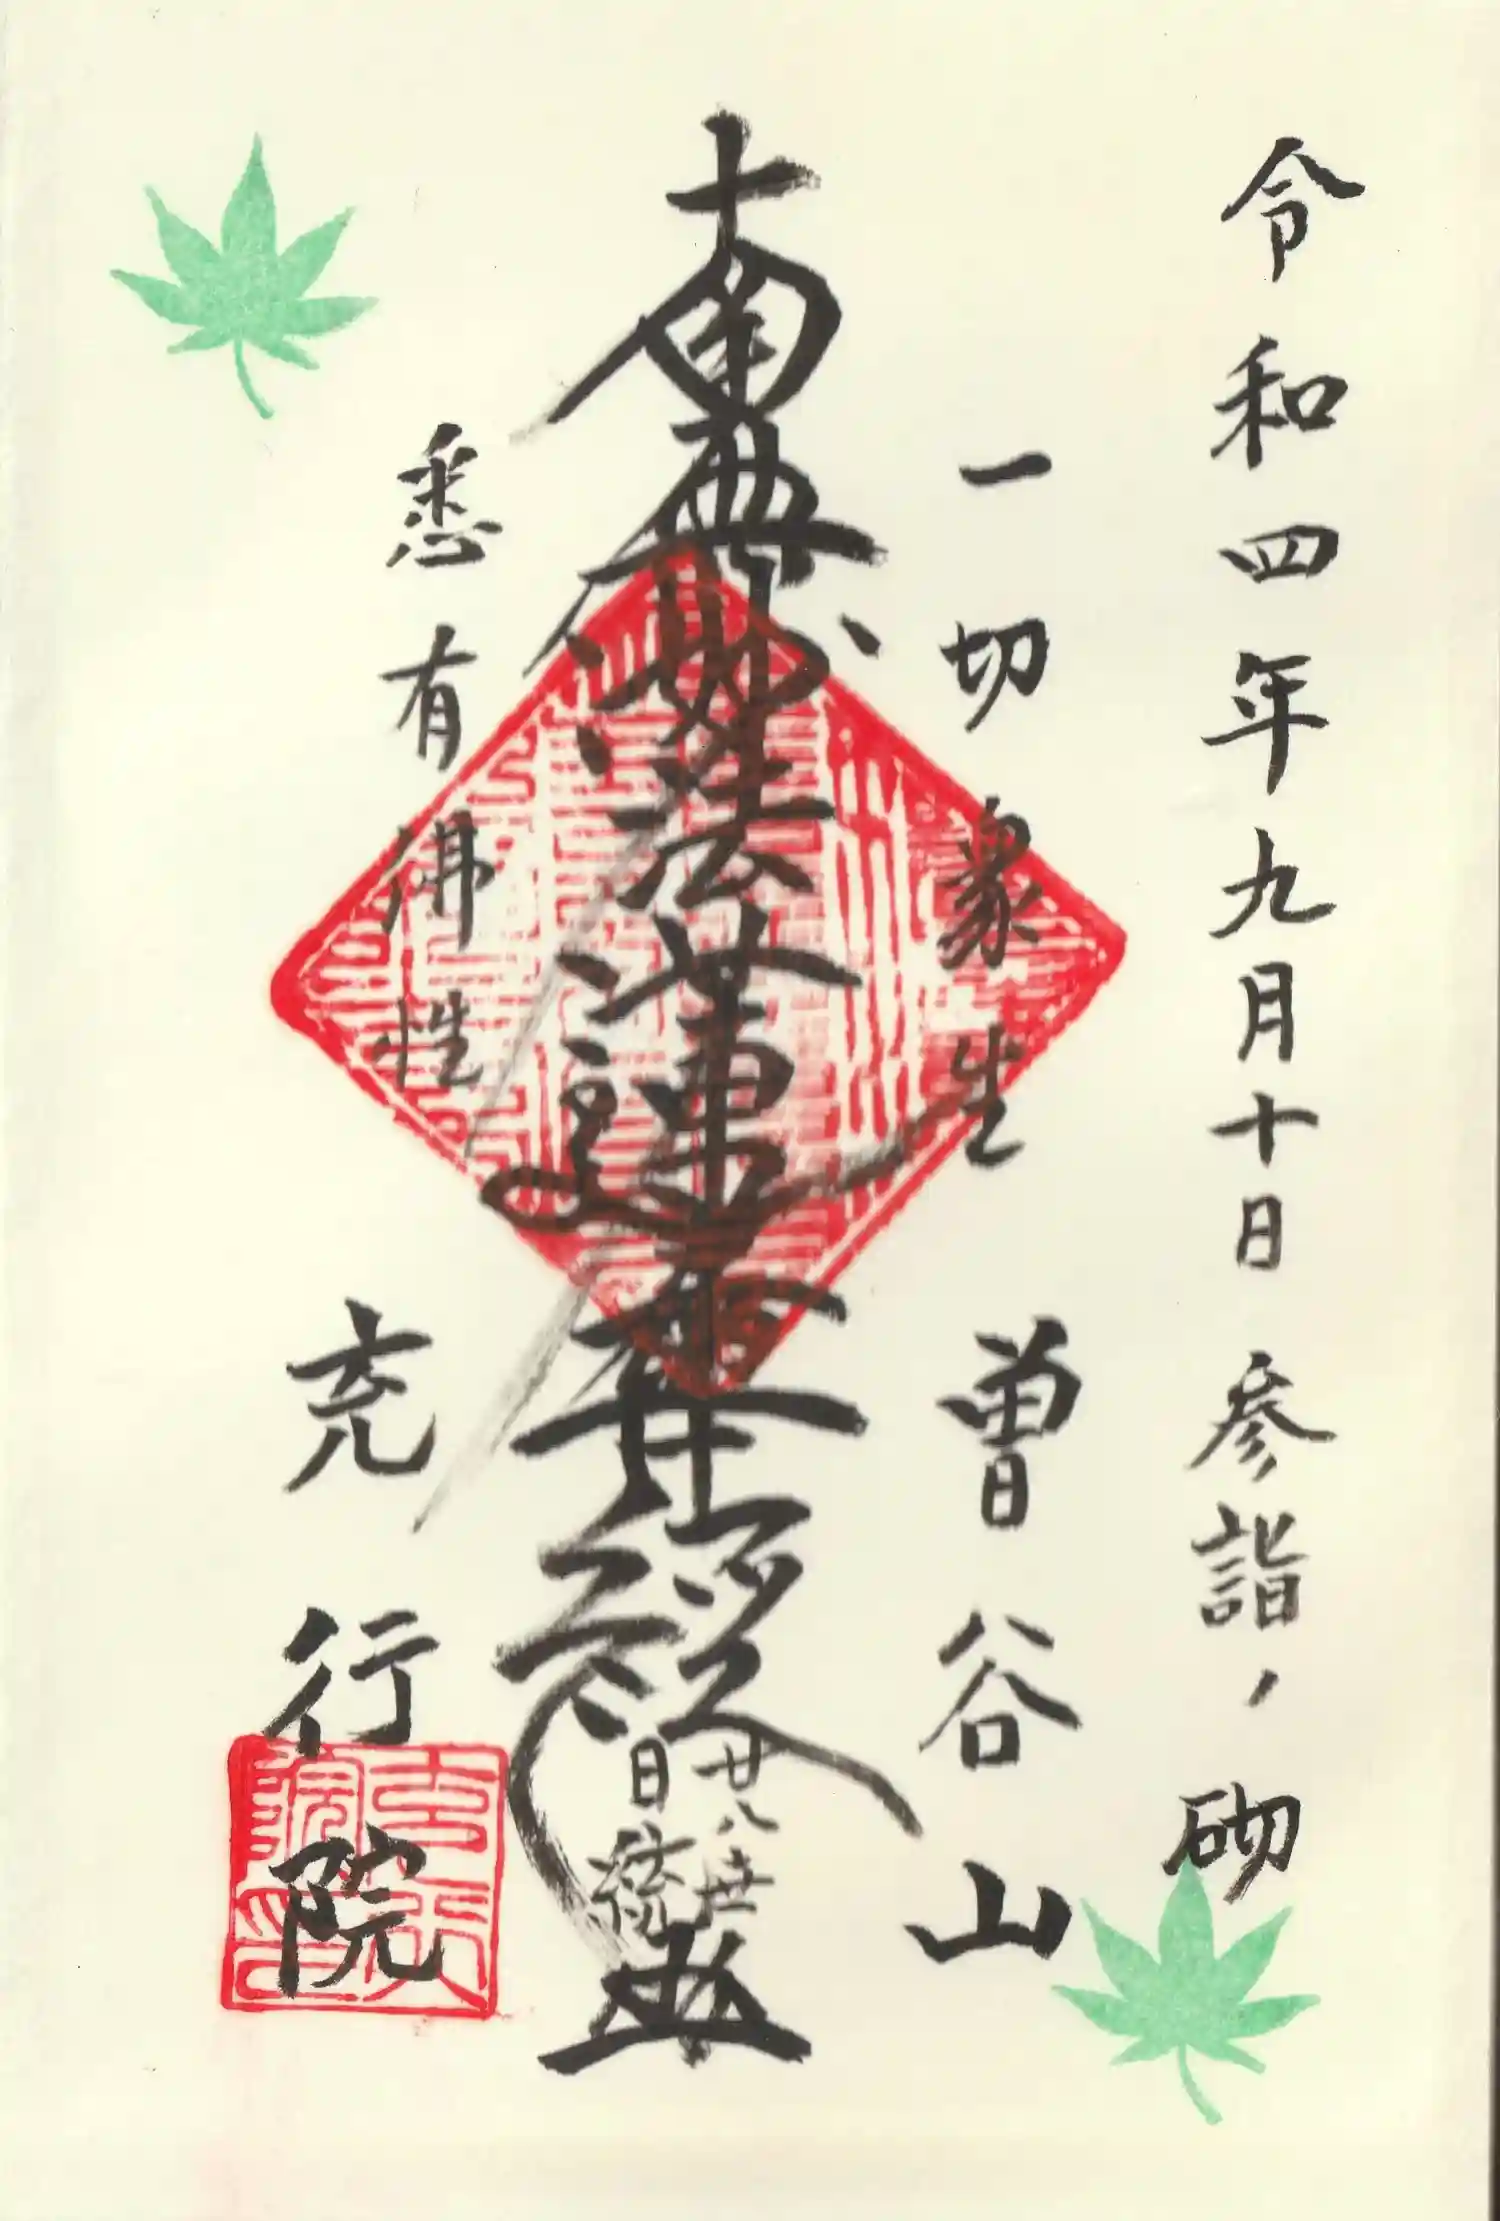 令和四年九月十日参詣ノ砌
一切衆生
曽谷山
南無妙法蓮華経
廿八世
日
悉有佛性
充行院